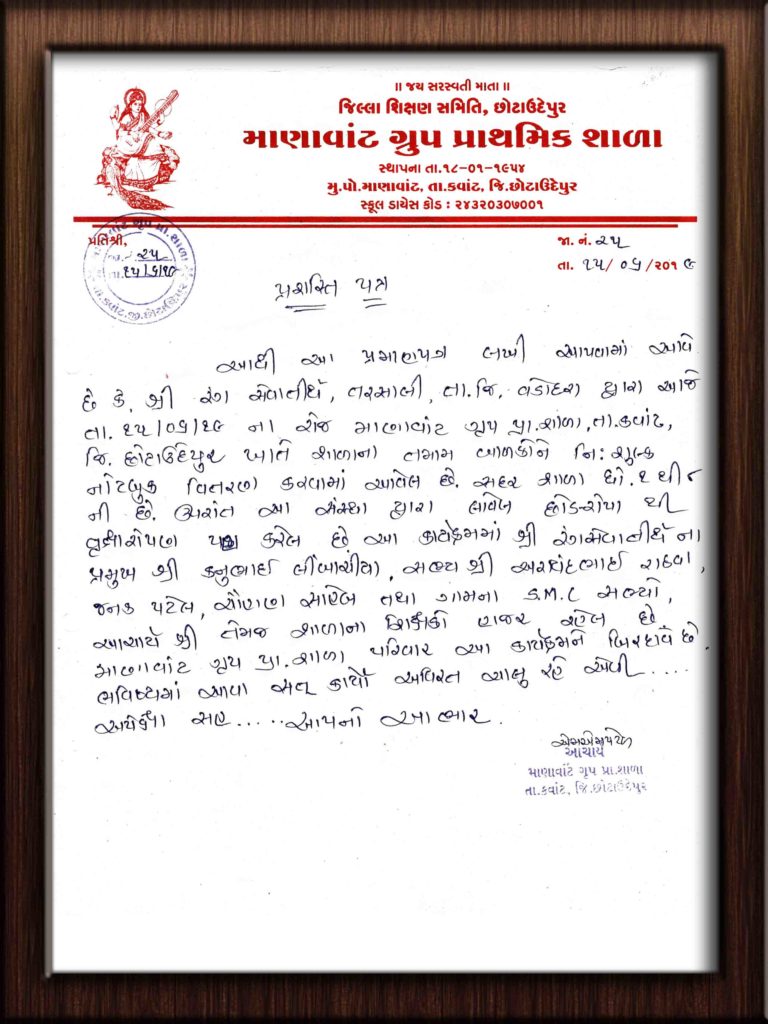 ॥ જય સરસ્વતી માતા ॥
જિલ્લા શિક્ષણ સમિતિ, છોટાઉદેપુર
માણાવાંટ ગ્રુપ પ્રાથમિક શાળા
સ્થાપના તા.૧૮-૦૧-૧૯૫૪
મુ.પો.માણાવાંટ, તા.કવાંટ, જિ.છોટાઉદેપુર
સ્કૂલ ડાયેસ કોડ : ૨૪૩૨૦૩૦૭૦૦૧
પ્રતિશ્રી,
જા. નં. ૨૫
તા. ૧૫/૦૬/૨૦૧૯
પ્રશસ્તિ પત્ર
આથી આ પ્રમાણપત્ર લખી આપવામાં આવે
છે કે, શ્રી રંગ સેવાતીર્થ, તરસાલી, તા.જિ. વડોદરા દ્વારા આજે
તા. ૧૫/૦૬/૧૯ ના રોજ માણાવાંટ ગ્રુપ પ્રા.શાળા, તા.કવાંટ,
જિ. છોટાઉદેપુર ખાતે શાળાના તમામ બાળકોને નિ:શુલ્ક
નોટબુક વિતરણ કરવામાં આવેલ છે. સદર શાળા ધો. ૧ થી ૮
ની છે. ઉપરાંત આ સંસ્થા દ્વારા લાવેલ છોડ-રોપા થી
વૃક્ષારોપણ પણ કરેલ છે આ કાર્યક્રમમાં શ્રી રંગસેવાતીર્થ ના
પ્રમુખ શ્રી કનુભાઈ લીંબાસીયા, સભ્ય શ્રી અરવિંદભાઈ રાઠવા,
જનક પટેલ, ચૌહાણ સાહેબ તથા ગામના S.M.C સભ્યો,
આચાર્ય શ્રી તેમજ શાળાના શિક્ષકો હાજર રહેલ છે
માણાવાંટ ગ્રુપ પ્રા.શાળા પરિવાર આ કાર્યક્રમને બિરદાવે છે.
ભવિષ્યમાં આવા સત્ કાર્યો અવિરત ચાલુ રહે એવી....
અપેક્ષા સહ.....આપનો આભાર.
આચાર્ય
માણાવાંટ ગ્રુપ પ્રા.શાળા
તા.કવાંટ, જિ.છોટાઉદેપુર